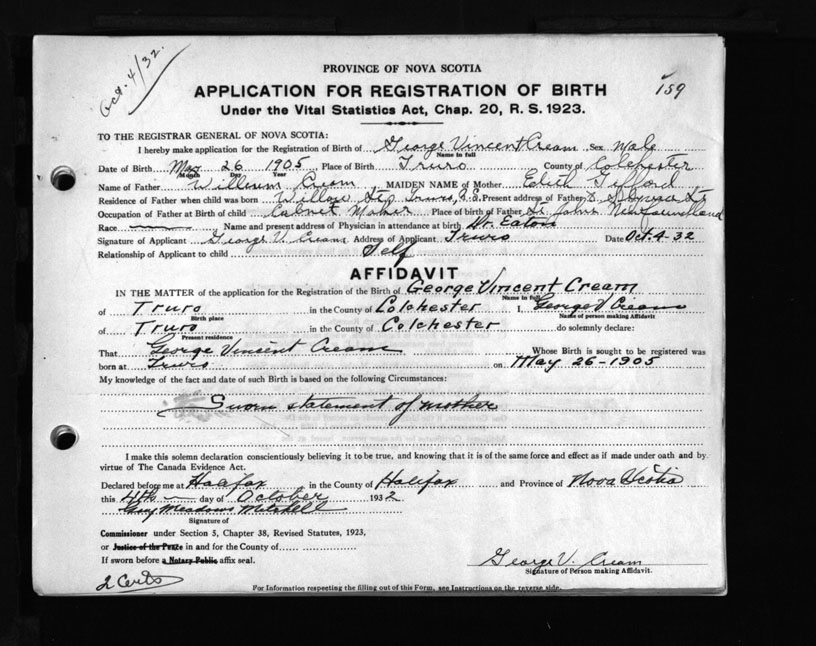 Oct. 4/32.
PROVINCE OF NOVA SCOTIA
APPLICATION FOR REGISTRATION OF BIRTH
159
Under the Vital Statistics Act, Chap. 20, R. S. 1923.
TO THE REGISTRAR GENERAL OF NOVA SCOTIA:
I hereby make application for the Registration of Birth of George Vincent Cream Sex Male
Name in full
Date of Birth May 26 1905 Place of Birth Truro County of Colchester
Month Day Year
Name of Father William Cream MAIDEN NAME of Mother Edith Gifford
Residence of Father when child was born Willow St, Truro, N.S. Present address of Father
Occupation of Father at Birth of child Cabinet Maker Place of birth of Father St. Johns Newfoundland
Race Name and present address of Physician in attendance at birth Dr. Eaton
Signature of Applicant George V. Cream Address of Applicant Truro Date Oct. 4-32
Relationship of Applicant to child Self
AFFIDAVIT
IN THE MATTER of the application for the Registration of the Birth of George Vincent Cream
Name in full
of Truro in the County of Colchester I, George V Cream
Birth place Name of person making Affidavit
of Truro in the County of Colchester do solemnly declare:
Present residence
That George Vincent Cream Whose Birth is sought to be registered was
born at Truro on May 26-1905
My knowledge of the fact and date of such Birth is based on the following Circumstances:
Sworn statement of mother
I make this solemn declaration conscientiously believing it to be true, and knowing that it is of the same force and effect as if made under oath and by
virtue of The Canada Evidence Act.
Declared before me at Halifax in the County of Halifax and Province of Nova Scotia
this 4th day of October 1932
Guy Meadows Mitchell
Signature of
Commissioner under Section 5, Chapter 38, Revised Statutes, 1923,
or Justice of the Peace in and for the County of
If sworn before a Notary Public affix seal.
George V. Cream
Signature of Person making Affidavit.
2 Certs
For Information respecting the filling out of this Form, see Instructions on the reverse side.